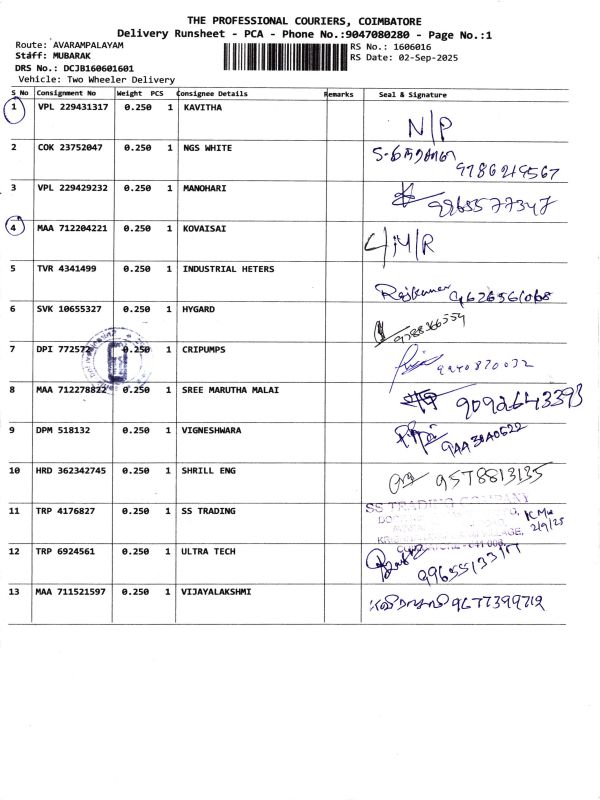 THE PROFESSIONAL COURIERS, COIMBATORE
Delivery Runsheet - PCA - Phone No.:9047080280 - Page No.:1
Route: AVARAMPALAYAM RS No.: 1606016
Staff: MUBARAK RS Date: 02-Sep-2025
DRS No.: DCJB160601601
Vehicle: Two Wheeler Delivery
S No Consignment No Weight PCS Consignee Details Remarks Seal & Signature
1 VPL 229431317 0.250 1 KAVITHA N/P
2 COK 23752047 0.250 1 NGS WHITE
9786219567
3 VPL 229429232 0.250 1 MANOHARI
9965577347
4 MAA 712204221 0.250 1 KOVAISAI
5 TVR 4341499 0.250 1 INDUSTRIAL HETERS
Rajkumar 9626561068
6 SVK 10655327 0.250 1 HYGARD
9788366554
7 DPI 77257 0.250 1 CRIPUMPS
9240870032
8 MAA 712278822 0.250 1 SREE MARUTHA MALAI
9092643393
9 DPM 518132 0.250 1 VIGNESHWARA
10 HRD 362342745 0.250 1 SHRILL ENG
9578813135
11 TRP 4176827 0.250 1 SS TRADING
SS TRADING COMPANY
2/9/25
12 TRP 6924561 0.250 1 ULTRA TECH
13 MAA 711521597 0.250 1 VIJAYALAKSHMI
9677399712